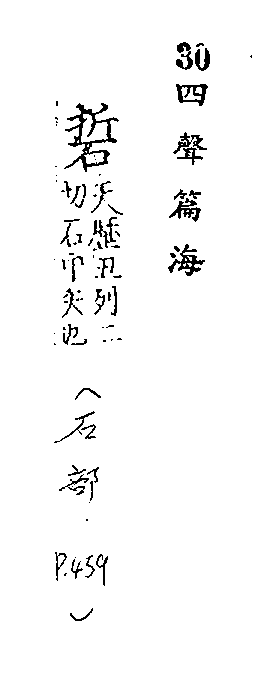 30四聲篇海
硩
天歴丑列二
切石巾矢也
(石部.P.459)